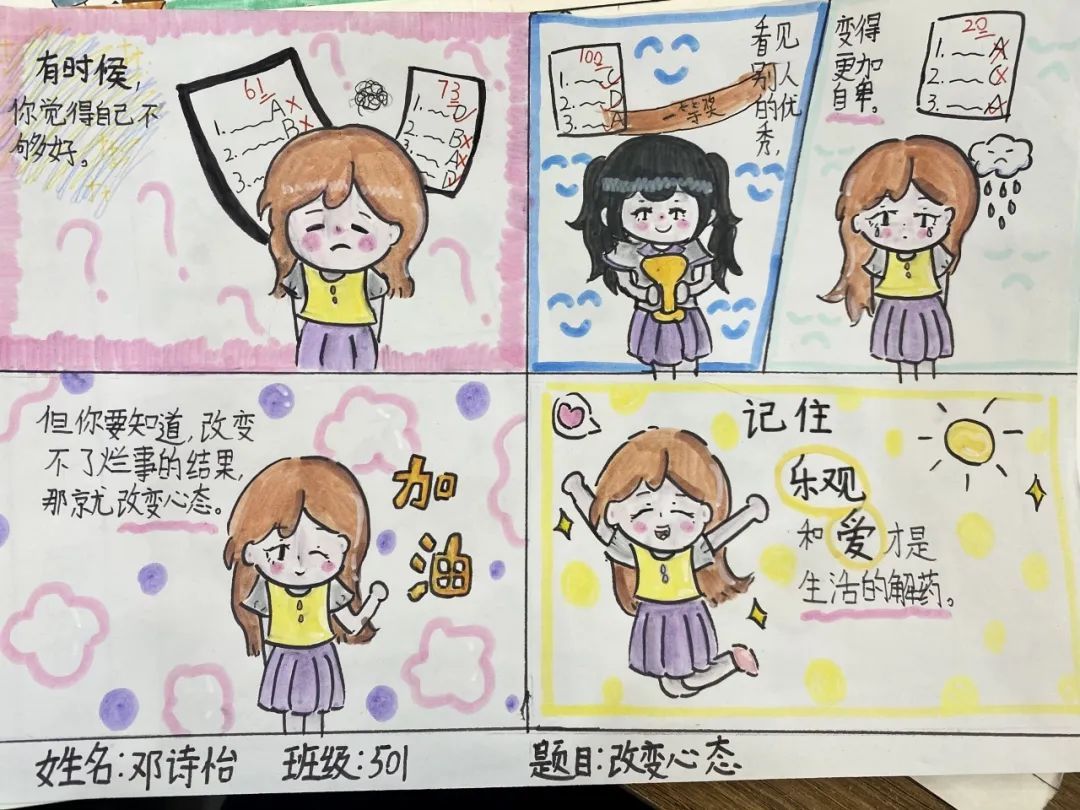 有时候，
你觉得自己不
够好。
61
1.~~A×
2.~~B×
3.~~
73
1.~~D
2.~~B×
3.~~A×
看见
别人
的优
秀，
100
1.~~C
2.~~D
3.~~A
一等奖
变得
更加
自卑。
20
1.~~A
2.~~C
3.~~A
但你要知道，改变
不了烂事的结果，
那就改变心态。
加
油
记住
乐观
和爱才是
生活的解药。
姓名：邓诗怡 班级：501 题目：改变心态